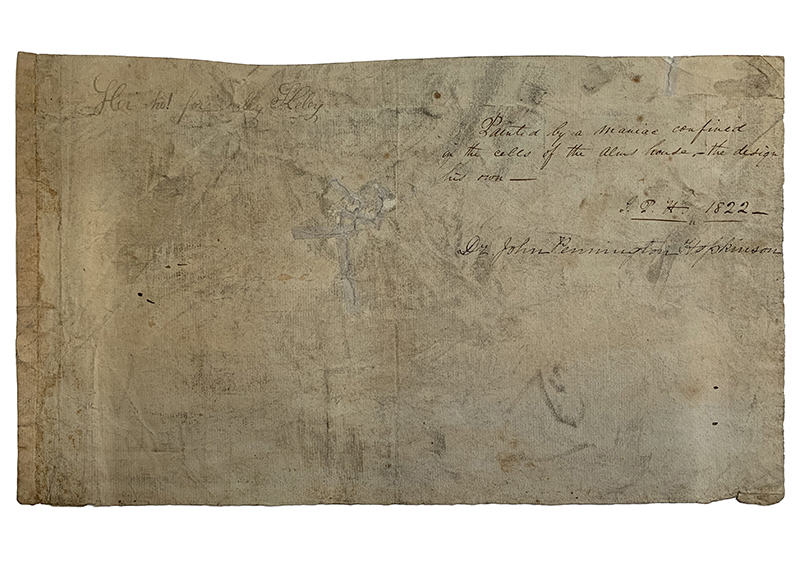 for
Painted by a Maniac confined
in the cells of the Alms house, – the design
his own —
J. P. H. 1822 –
Dr John Pennington Hopkinson